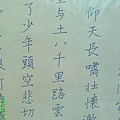 仰天長嘯壯懷激
与土八千里路雲
了少年頭空悲切